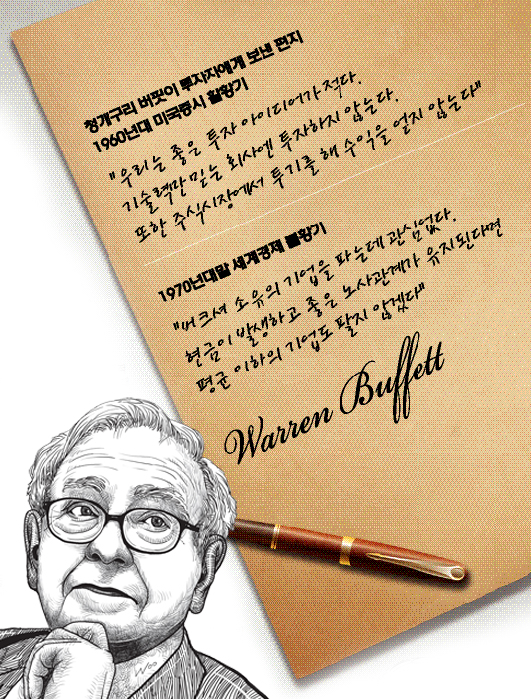 청개구리 버핏이 투자자에게 보낸 편지
1960년대 미국증시 활황기
"우리는 좋은 투자 아이디어가 적다.
기술력만 믿는 회사엔 투자하지 않는다.
또한 주식시장에서 투기를 해 수익을 얻지 않는다"
1970년대말 세계경제 불황기
"버크셔 소유의 기업을 파는데 관심없다.
현금이 발생하고 좋은 노사관계가 유지된다면
평균 이하의 기업도 팔지 않겠다"
Warren Buffett
Woo